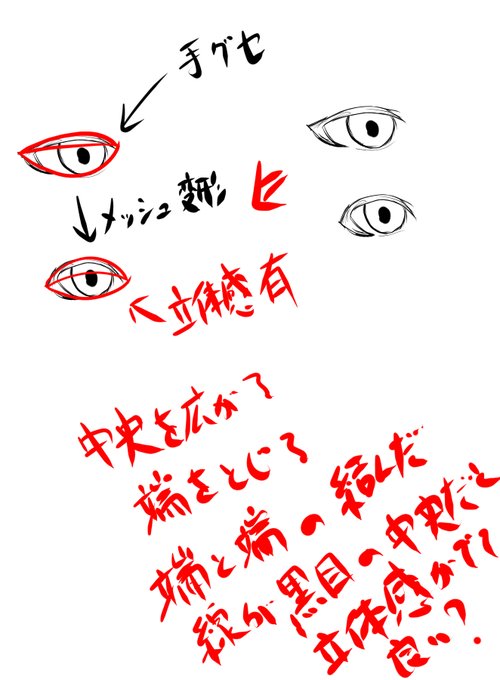 手グセ
メッシュ変形
立体感有
中央を広がる
端をとじる
端と端の結んだ
線が黒目の中央だと
立体感がでて
良い?